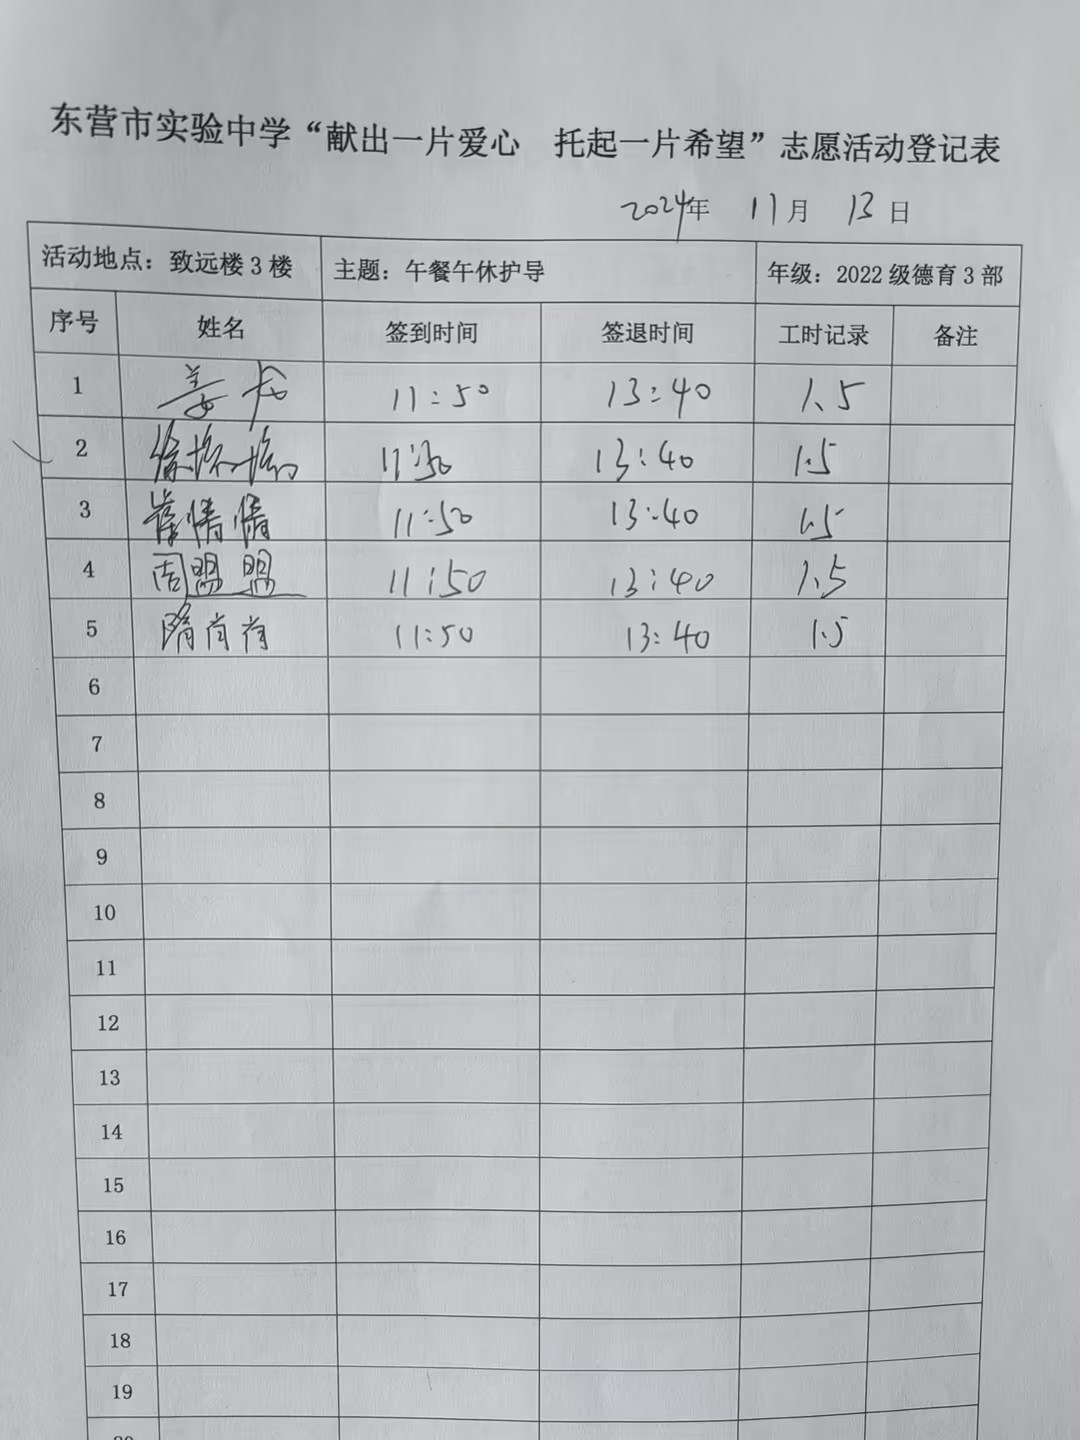 东营市实验中学“献出一片爱心 托起一片希望”志愿活动登记表
2024年 11月 13日
活动地点：致远楼3楼 主题：午餐午休护导 年级：2022级德育3部
序号 姓名 签到时间 签退时间 工时记录 备注
1 姜 11:50 13:40 1.5
2 徐 11:50 13:40 1.5
3 崔情情 11:50 13:40 1.5
4 周盟盟 11:50 13:40 1.5
5 隋肖肖 11:50 13:40 1.5
6
7
8
9
10
11
12
13
14
15
16
17
18
19
20